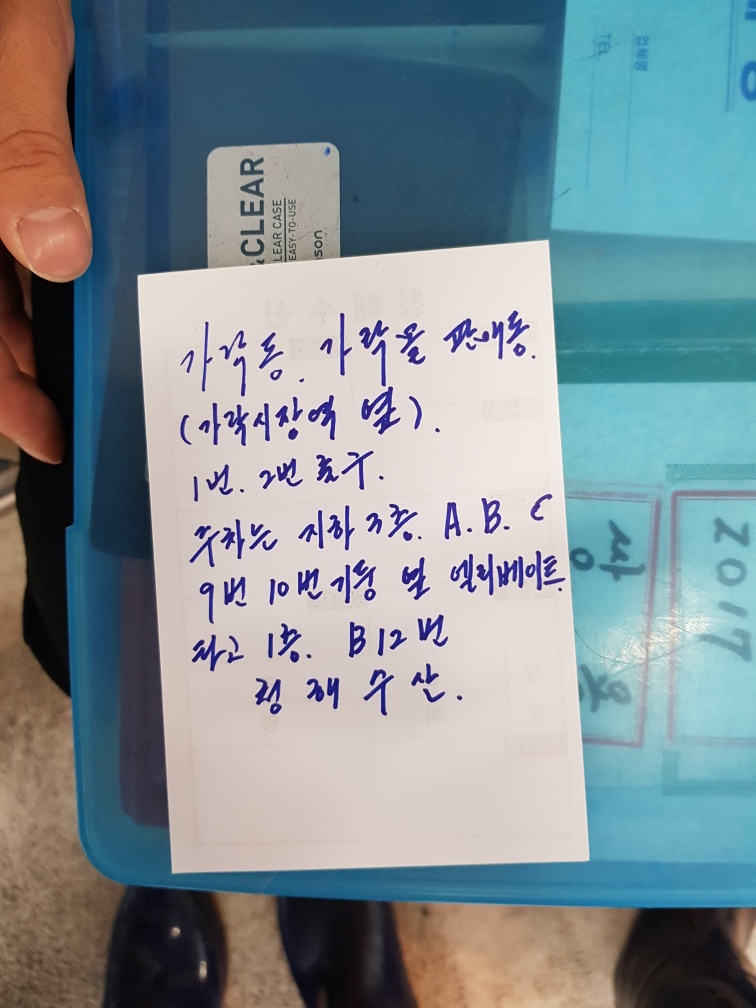 &CLEAR
LEAR CASE
EASY-TO-USE
son
가락동. 가락몰 판매동.
(가락시장역 옆).
1번. 2번 출구.
주차는 지하 3층. A. B. C
9번 10번 기둥 옆 엘리베이트.
타고 1층. B12번
청해수산.
업체명
TEL
2017